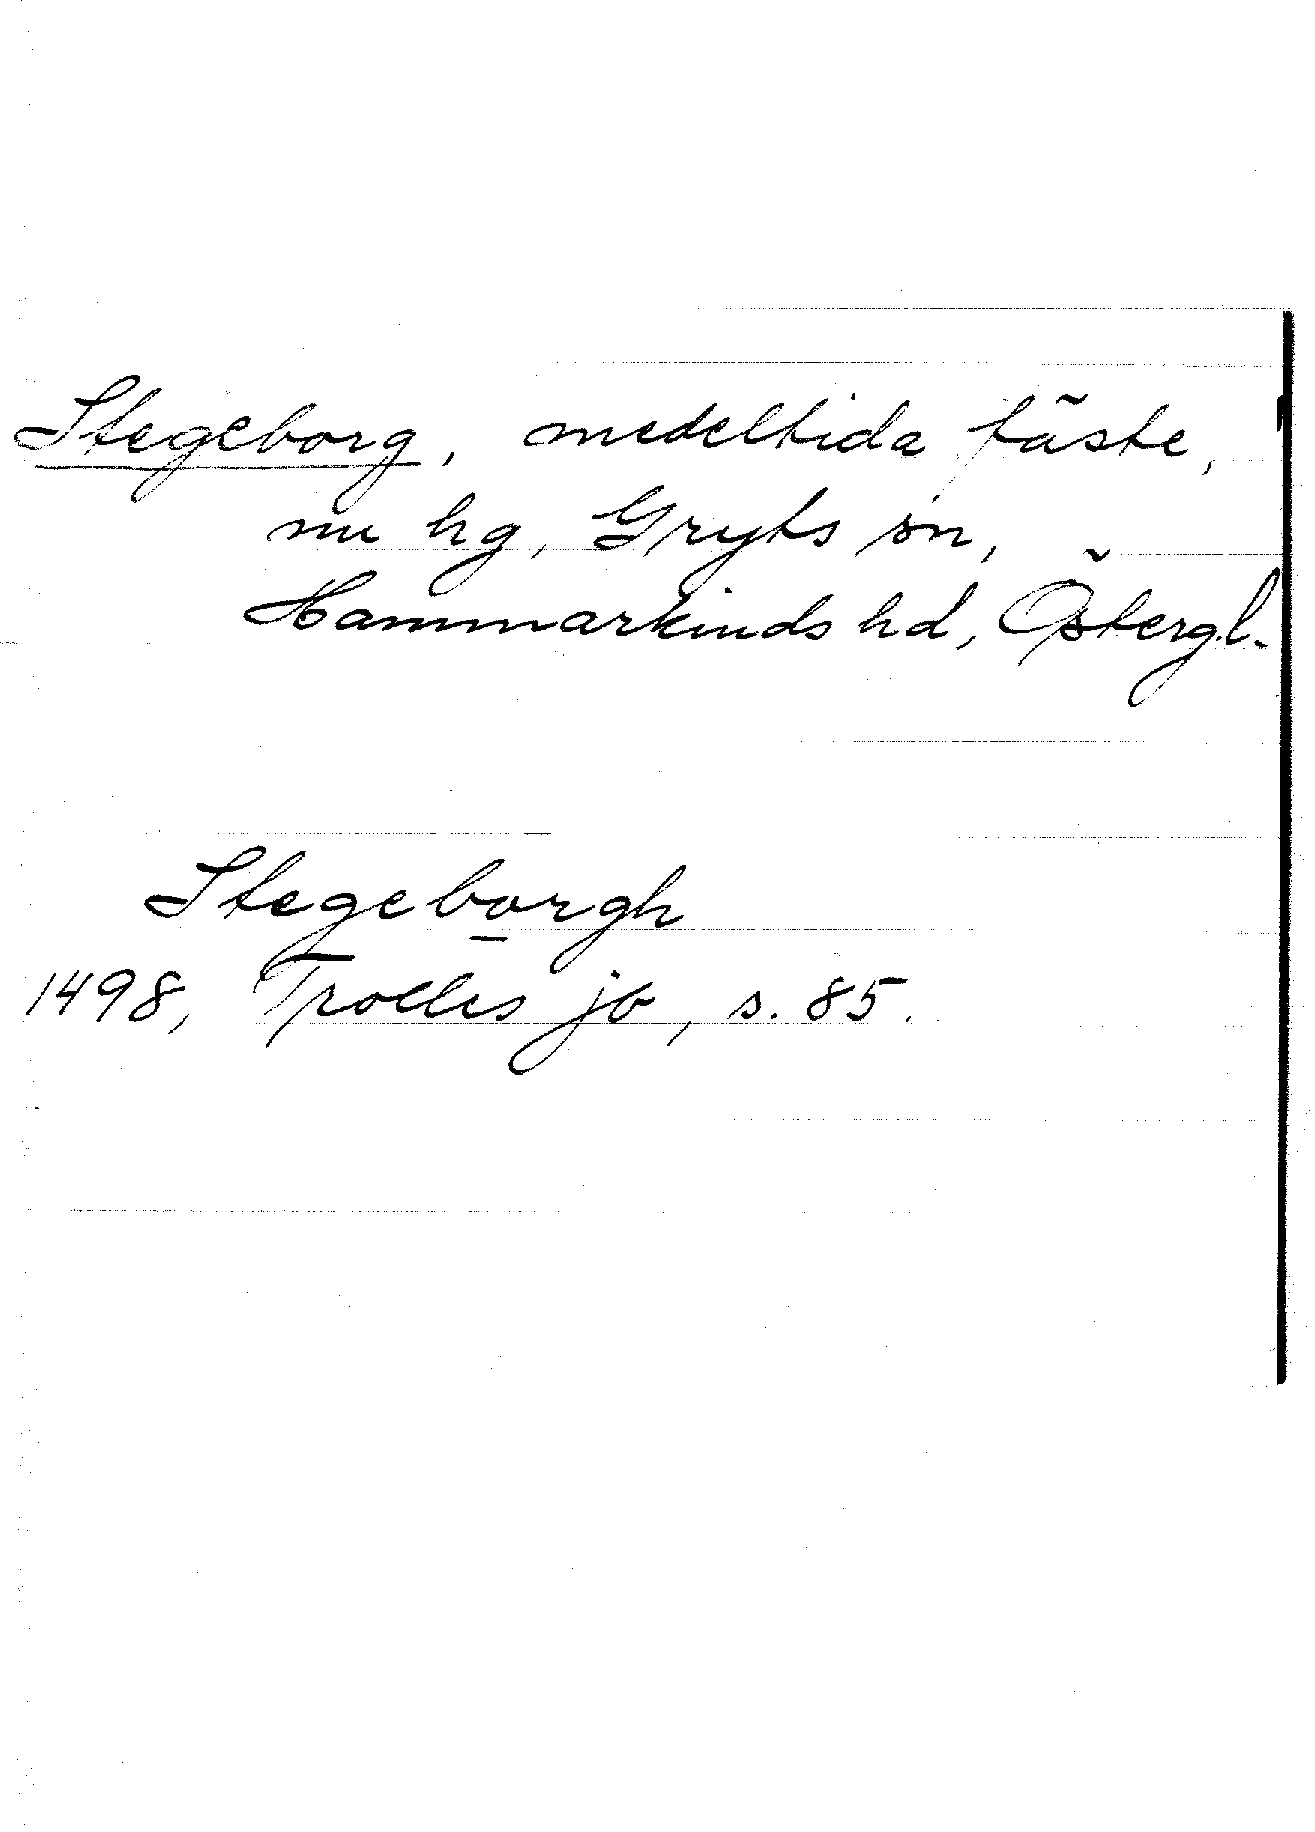 Stegeborg, medeltida fäste,
nu hg, Gryts sn,
Hammarkinds hd, Östergl.
Stegeborgh
1498, Trolles jb, s. 85.